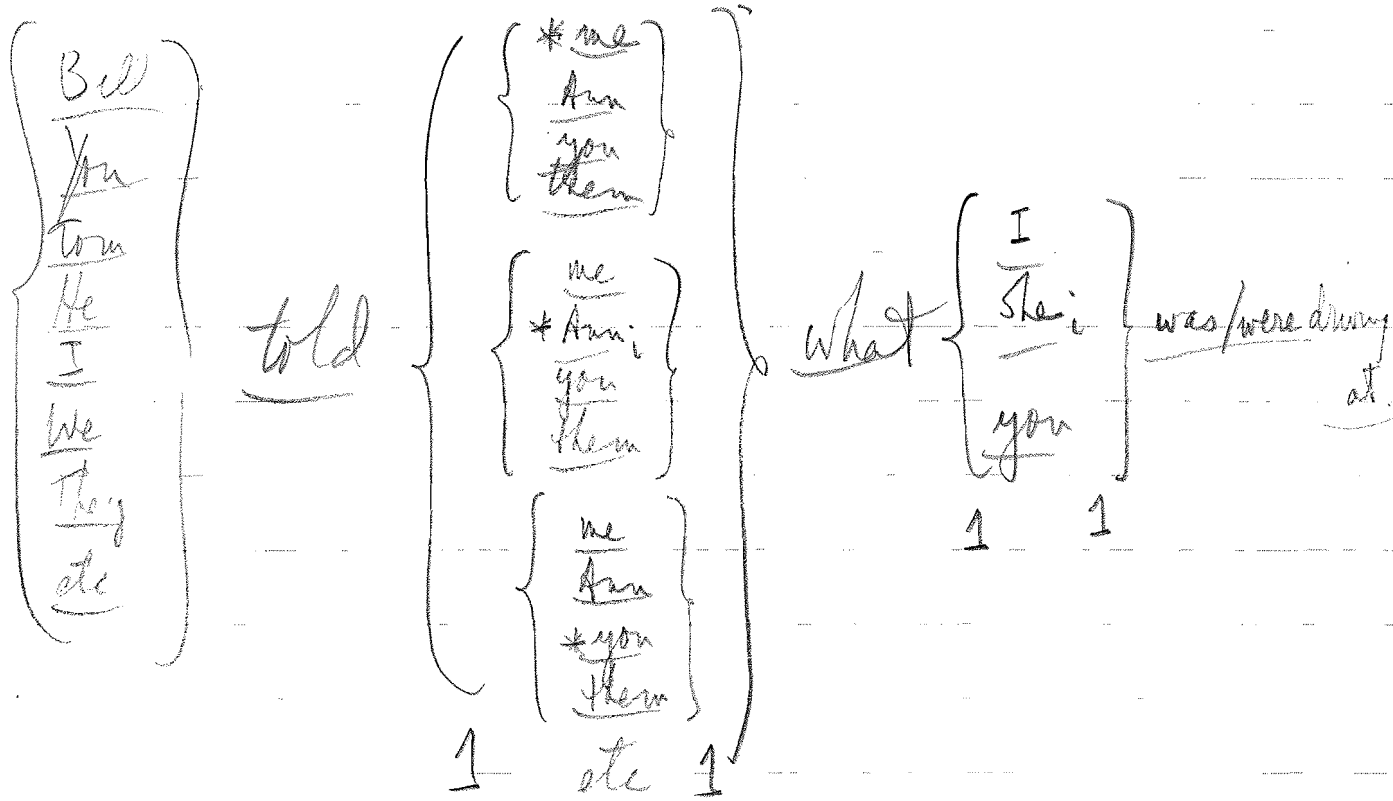 Bill
You
Tom
He
I
We
They
etc
told
*me
Ann
you
them
me
*Ann i
you
them
me
Ann
*you
them
etc
1 1
what
I
She i
you
1 1
was/were driving
at.